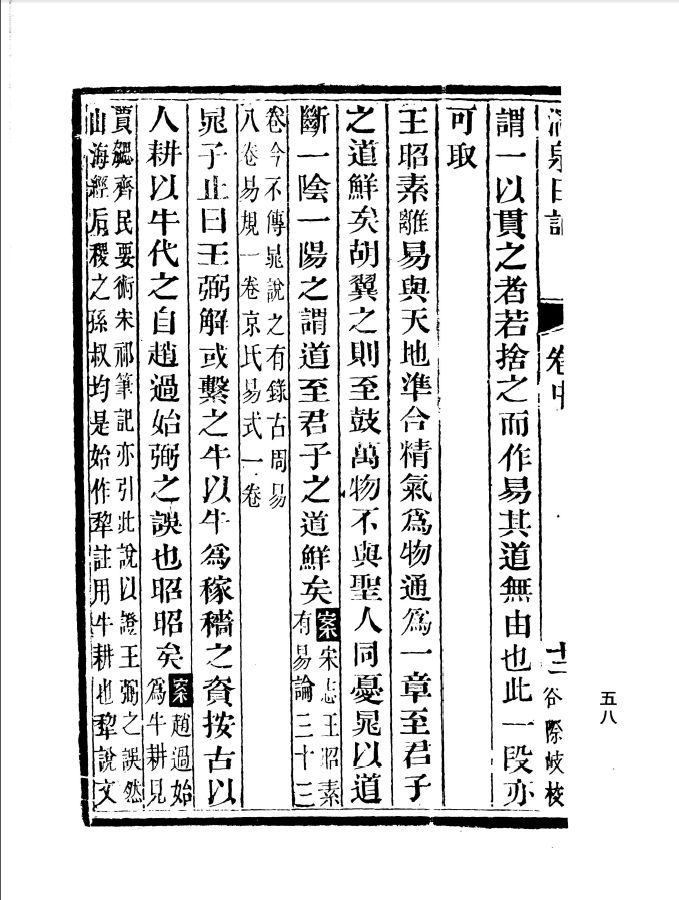 五八
澗泉日記 卷中 十二 谷際岐校
謂一以貫之者若捨之而作易其道無由也此一段亦
可取
王昭素離易與天地準合精氣爲物通爲一章至君子
之道鮮矣胡翼之則至鼓萬物不與聖人同憂晁以道
斷一陰一陽之謂道至君子之道鮮矣案宋志王昭素
有易論三十三
卷今不傳晁說之有錄古周易
八卷易規一卷京氏易式一卷
晁子止曰王弼解或繫之牛以牛爲稼穡之資按古以
人耕以牛代之自趙過始弼之誤也昭昭矣案趙過始
爲牛耕見
賈勰齊民要術宋祁筆記亦引此說以證王弼之誤然
山海經后稷之孫叔均是始作犂註用牛耕也犂說文